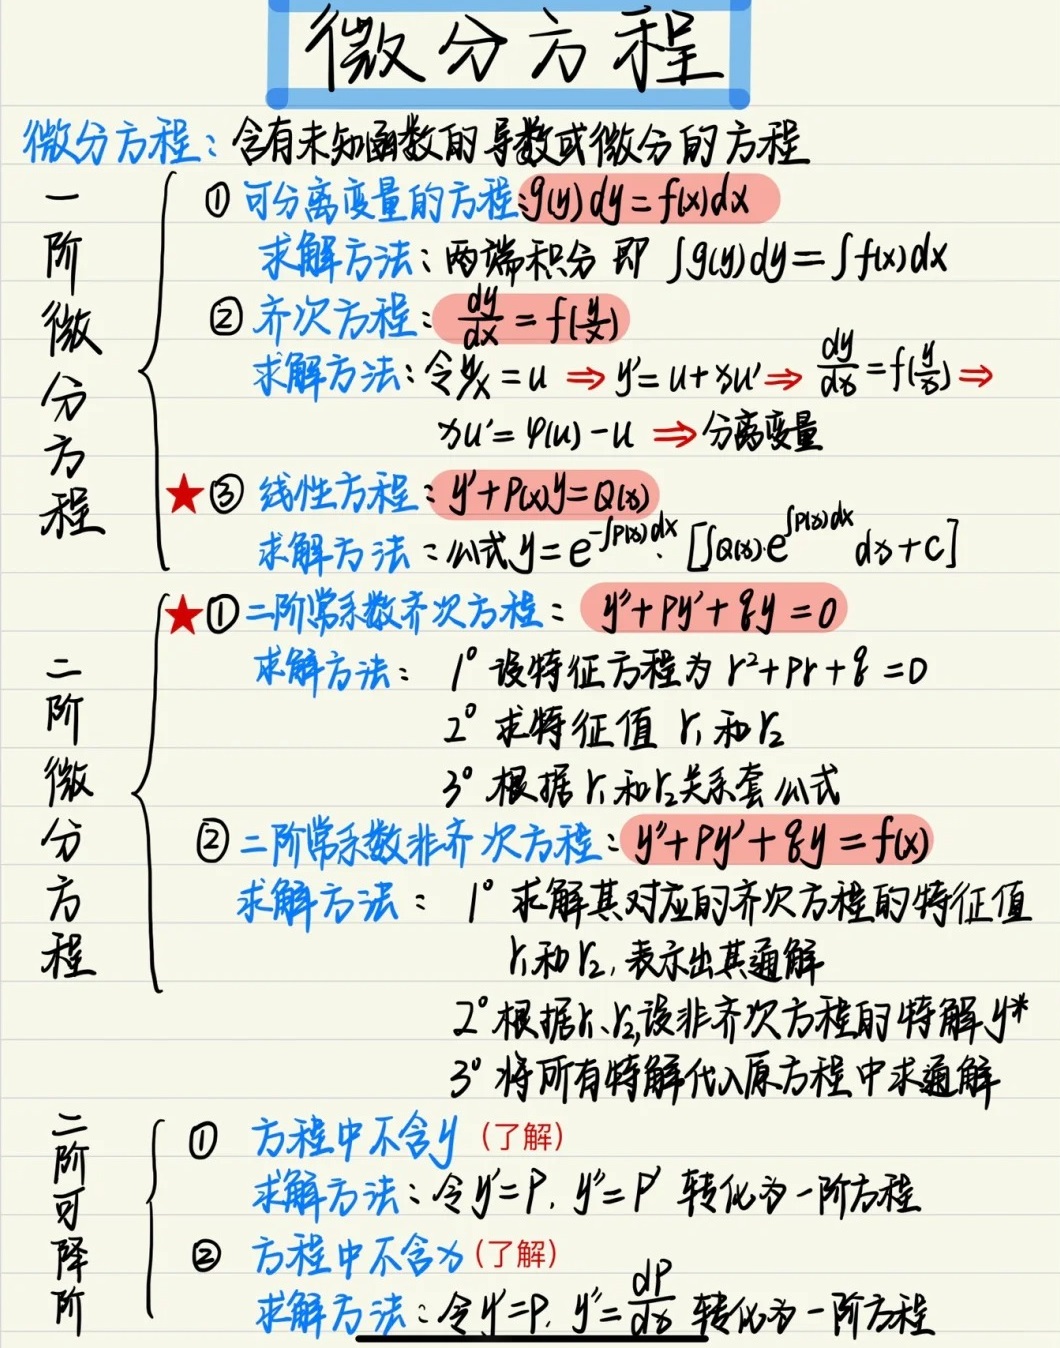 微分方程
微分方程：含有未知函数的导数或微分的方程
一阶微分方程
① 可分离变量的方程：g(y)dy=f(x)dx
求解方法：两端积分 即 ∫g(y)dy=∫f(x)dx
② 齐次方程：dy/dx=f(y/x)
求解方法：令y/x=u ⇒ y'=u+xu' ⇒ dy/dx=f(y/x) ⇒
xu'=φ(u)-u ⇒ 分离变量
★③ 线性方程：y'+P(x)y=Q(x)
求解方法：公式y=e^{-∫P(x)dx}·[∫Q(x)·e^{∫P(x)dx}dx+C]
二阶微分方程
★① 二阶常系数齐次方程：y''+Py'+qy=0
求解方法：1° 设特征方程为 r²+Pr+q=0
2° 求特征值 r₁和r₂
3° 根据r₁和r₂关系套公式
② 二阶常系数非齐次方程：y''+Py'+qy=f(x)
求解方法：1° 求解其对应的齐次方程的特征值
r₁和r₂,表示出其通解
2° 根据r₁、r₂,设非齐次方程的特解y*
3° 将所有特解代入原方程中求通解
二阶可降阶
① 方程中不含y（了解）
求解方法：令y'=P, y''=P' 转化为一阶方程
② 方程中不含x（了解）
求解方法：令y'=P, y''=dP/dx 转化为一阶方程